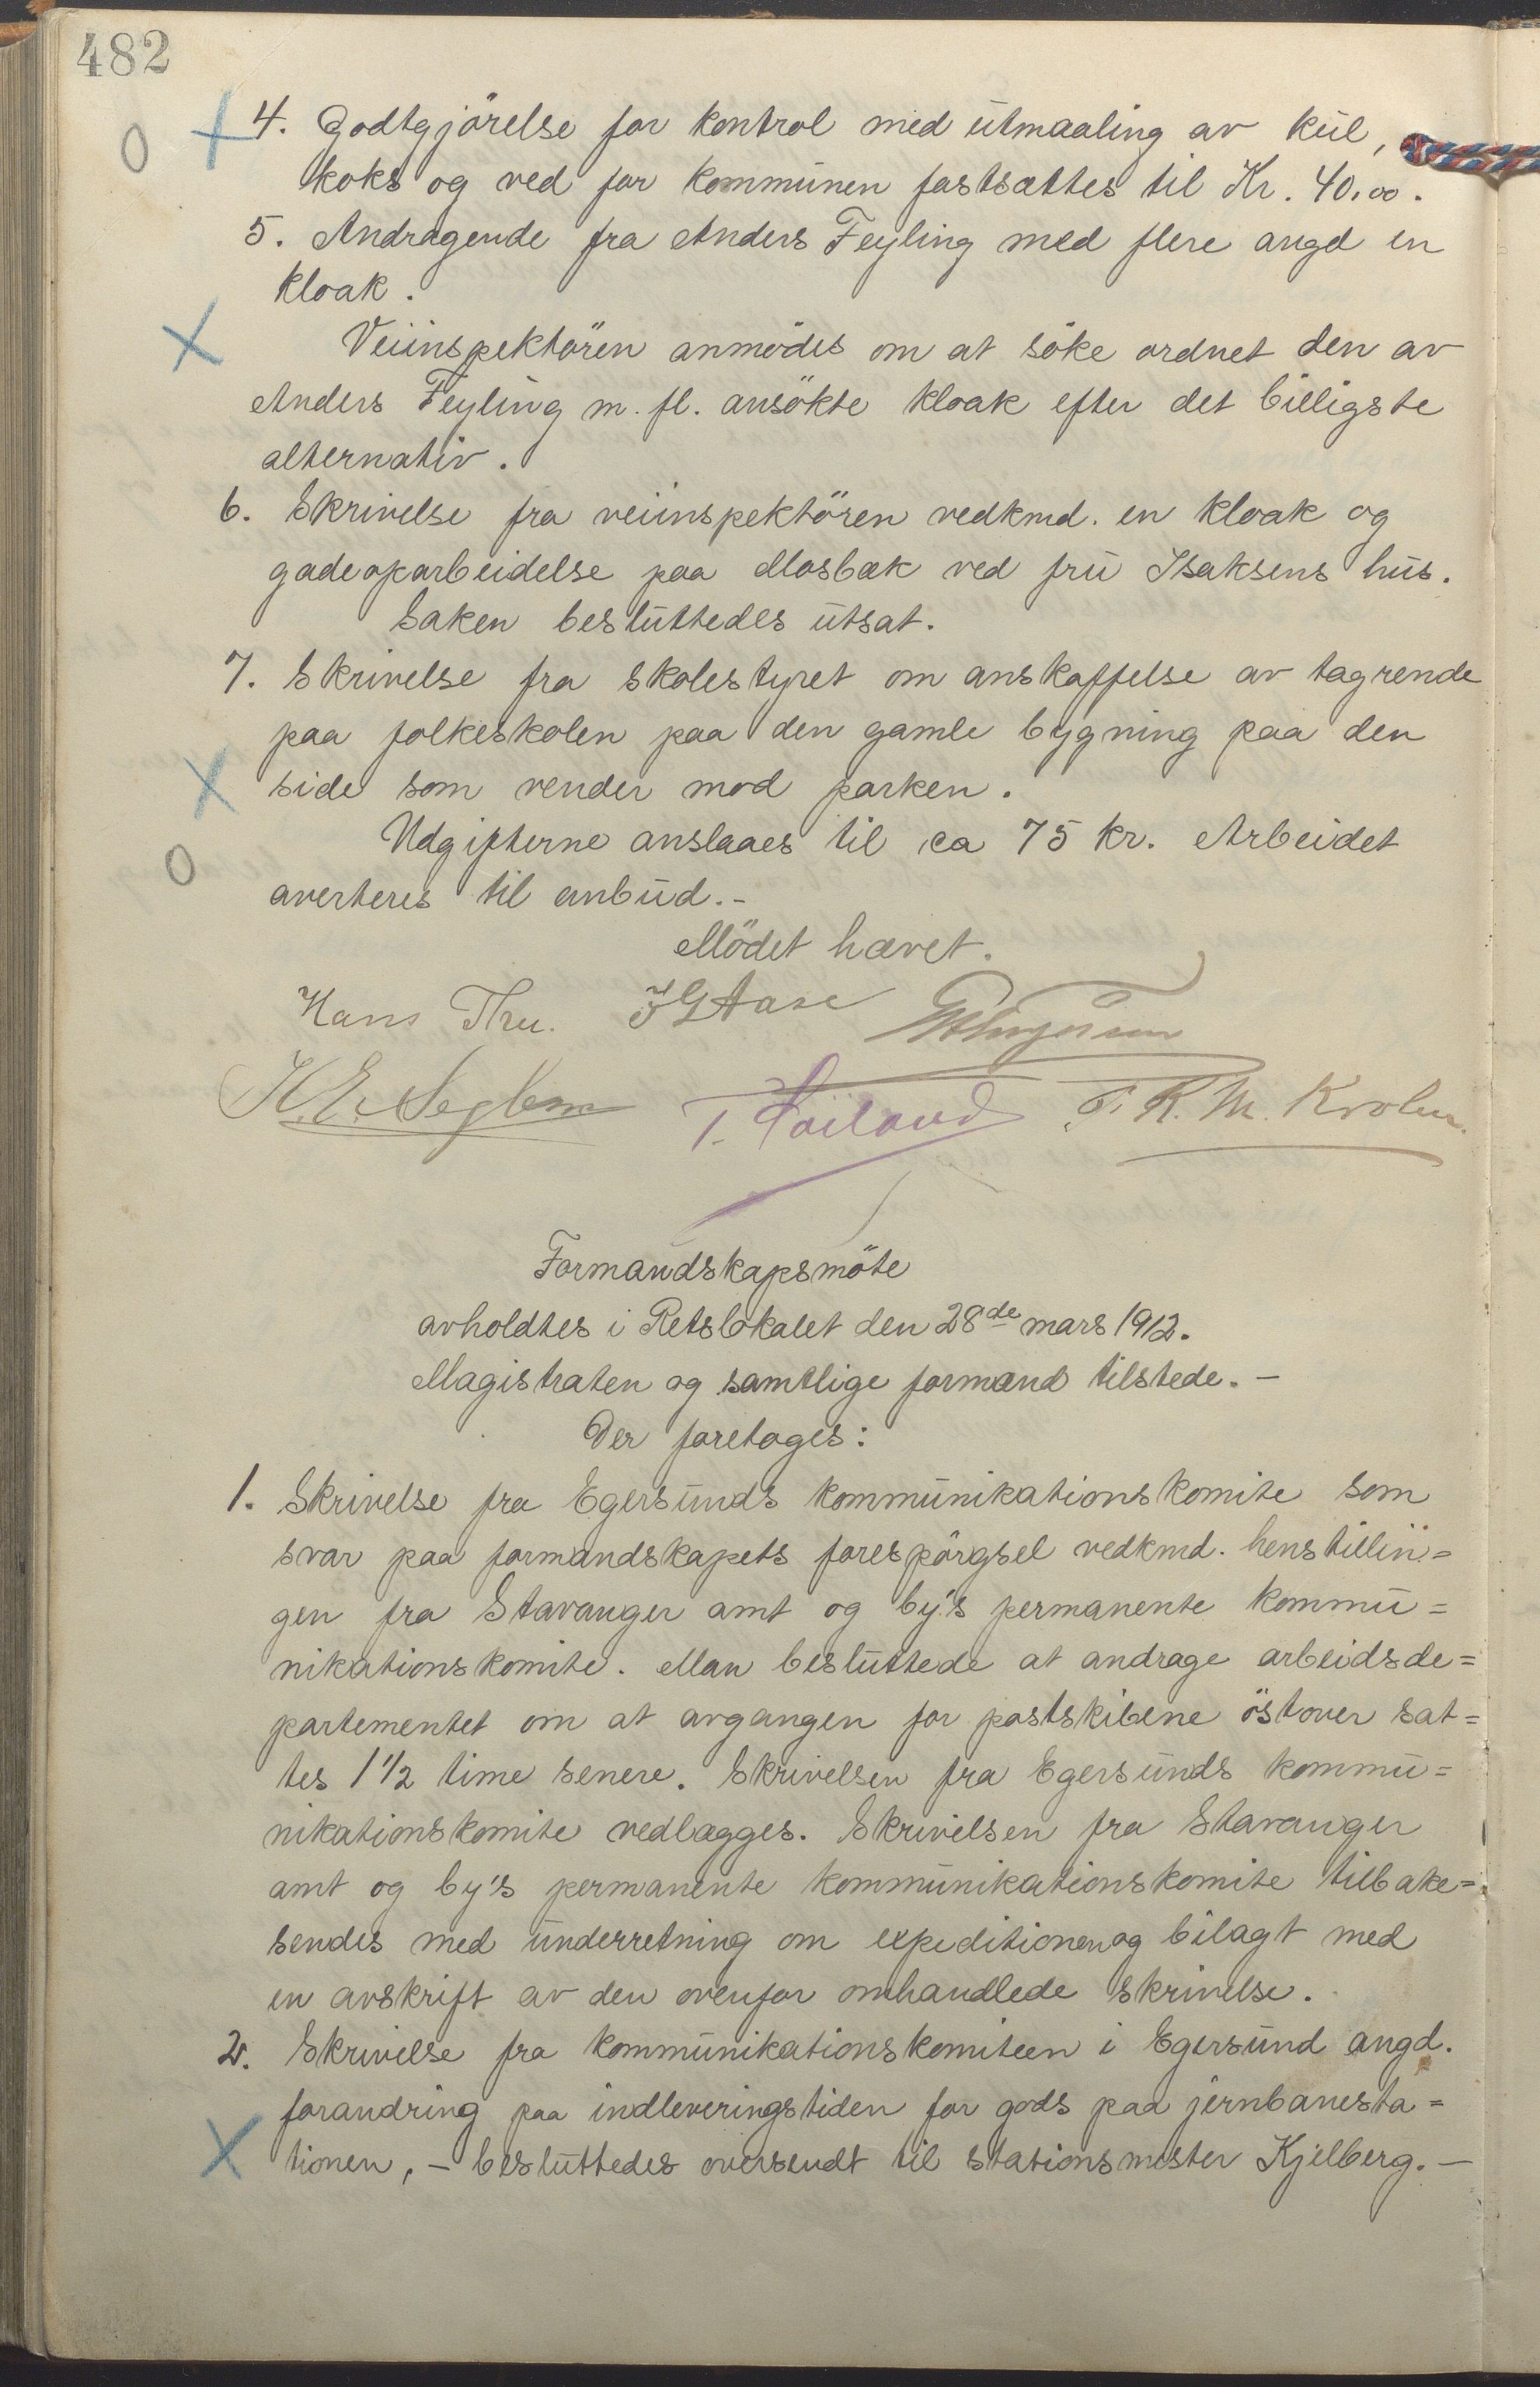 482
4. Godtgjörelse for kontrol med utmaaling av kul,
koks og ved for kommunen fastsættes til Kr. 40,00.
5. Andragende fra Anders Feyling med flere angd en
kloak.
Veiinspektören anmodes om at söke ordnet den av
Anders Feyling m. fl. ansökte kloak efter det billigste
alternativ.
6. Skrivelse fra veiinspektören vedkmd. en kloak og
gadeoparbeidelse paa Mosbæk ved fru Isaksens hus.
Saken besluttedes utsat.
7. Skrivelse fra skolestyret om anskaffelse av tagrende
paa folkeskolen paa den gamle bygning paa den
side som vender mod parken.
Udgifterne anslaaes til ca 75 kr. Arbeidet
averteres til anbud.-
Mödet hævet.
Hans Thu. I G Aase
K. E. Seglem T. Höiland F. R. M. Krohn.
Formandskapsmöte
avholdtes i Retslokalet den 28de mars 1912.
Magistraten og samtlige formænd tilstede. -
Der foretoges:
1. Skrivelse fra Egersunds kommunikationskomite som
svar paa formandskapets forespörgsel vedkmd. henstillin=
gen fra Stavanger amt og by's permanente kommu=
nikationskomite. Man besluttede at andrage arbeidsde=
partementet om at avgangen for postskibene östover sæt=
tes 1 1/2 time senere. Skrivelsen fra Egersunds kommu=
nikationskomite vedlægges. Skrivelsen fra Stavanger
amt og by's permanente kommunikationskomite tilbake=
sendes med underretning om expeditionen og bilagt med
en avskrift av den ovenfor omhandlede skrivelse.
2. Skrivelse fra kommunikationskomiteen i Egersund angd.
forandring paa indleveringstiden for gods paa jernbanesta=
tionen, - besluttedes oversendt til stationsmester Kjelberg. -